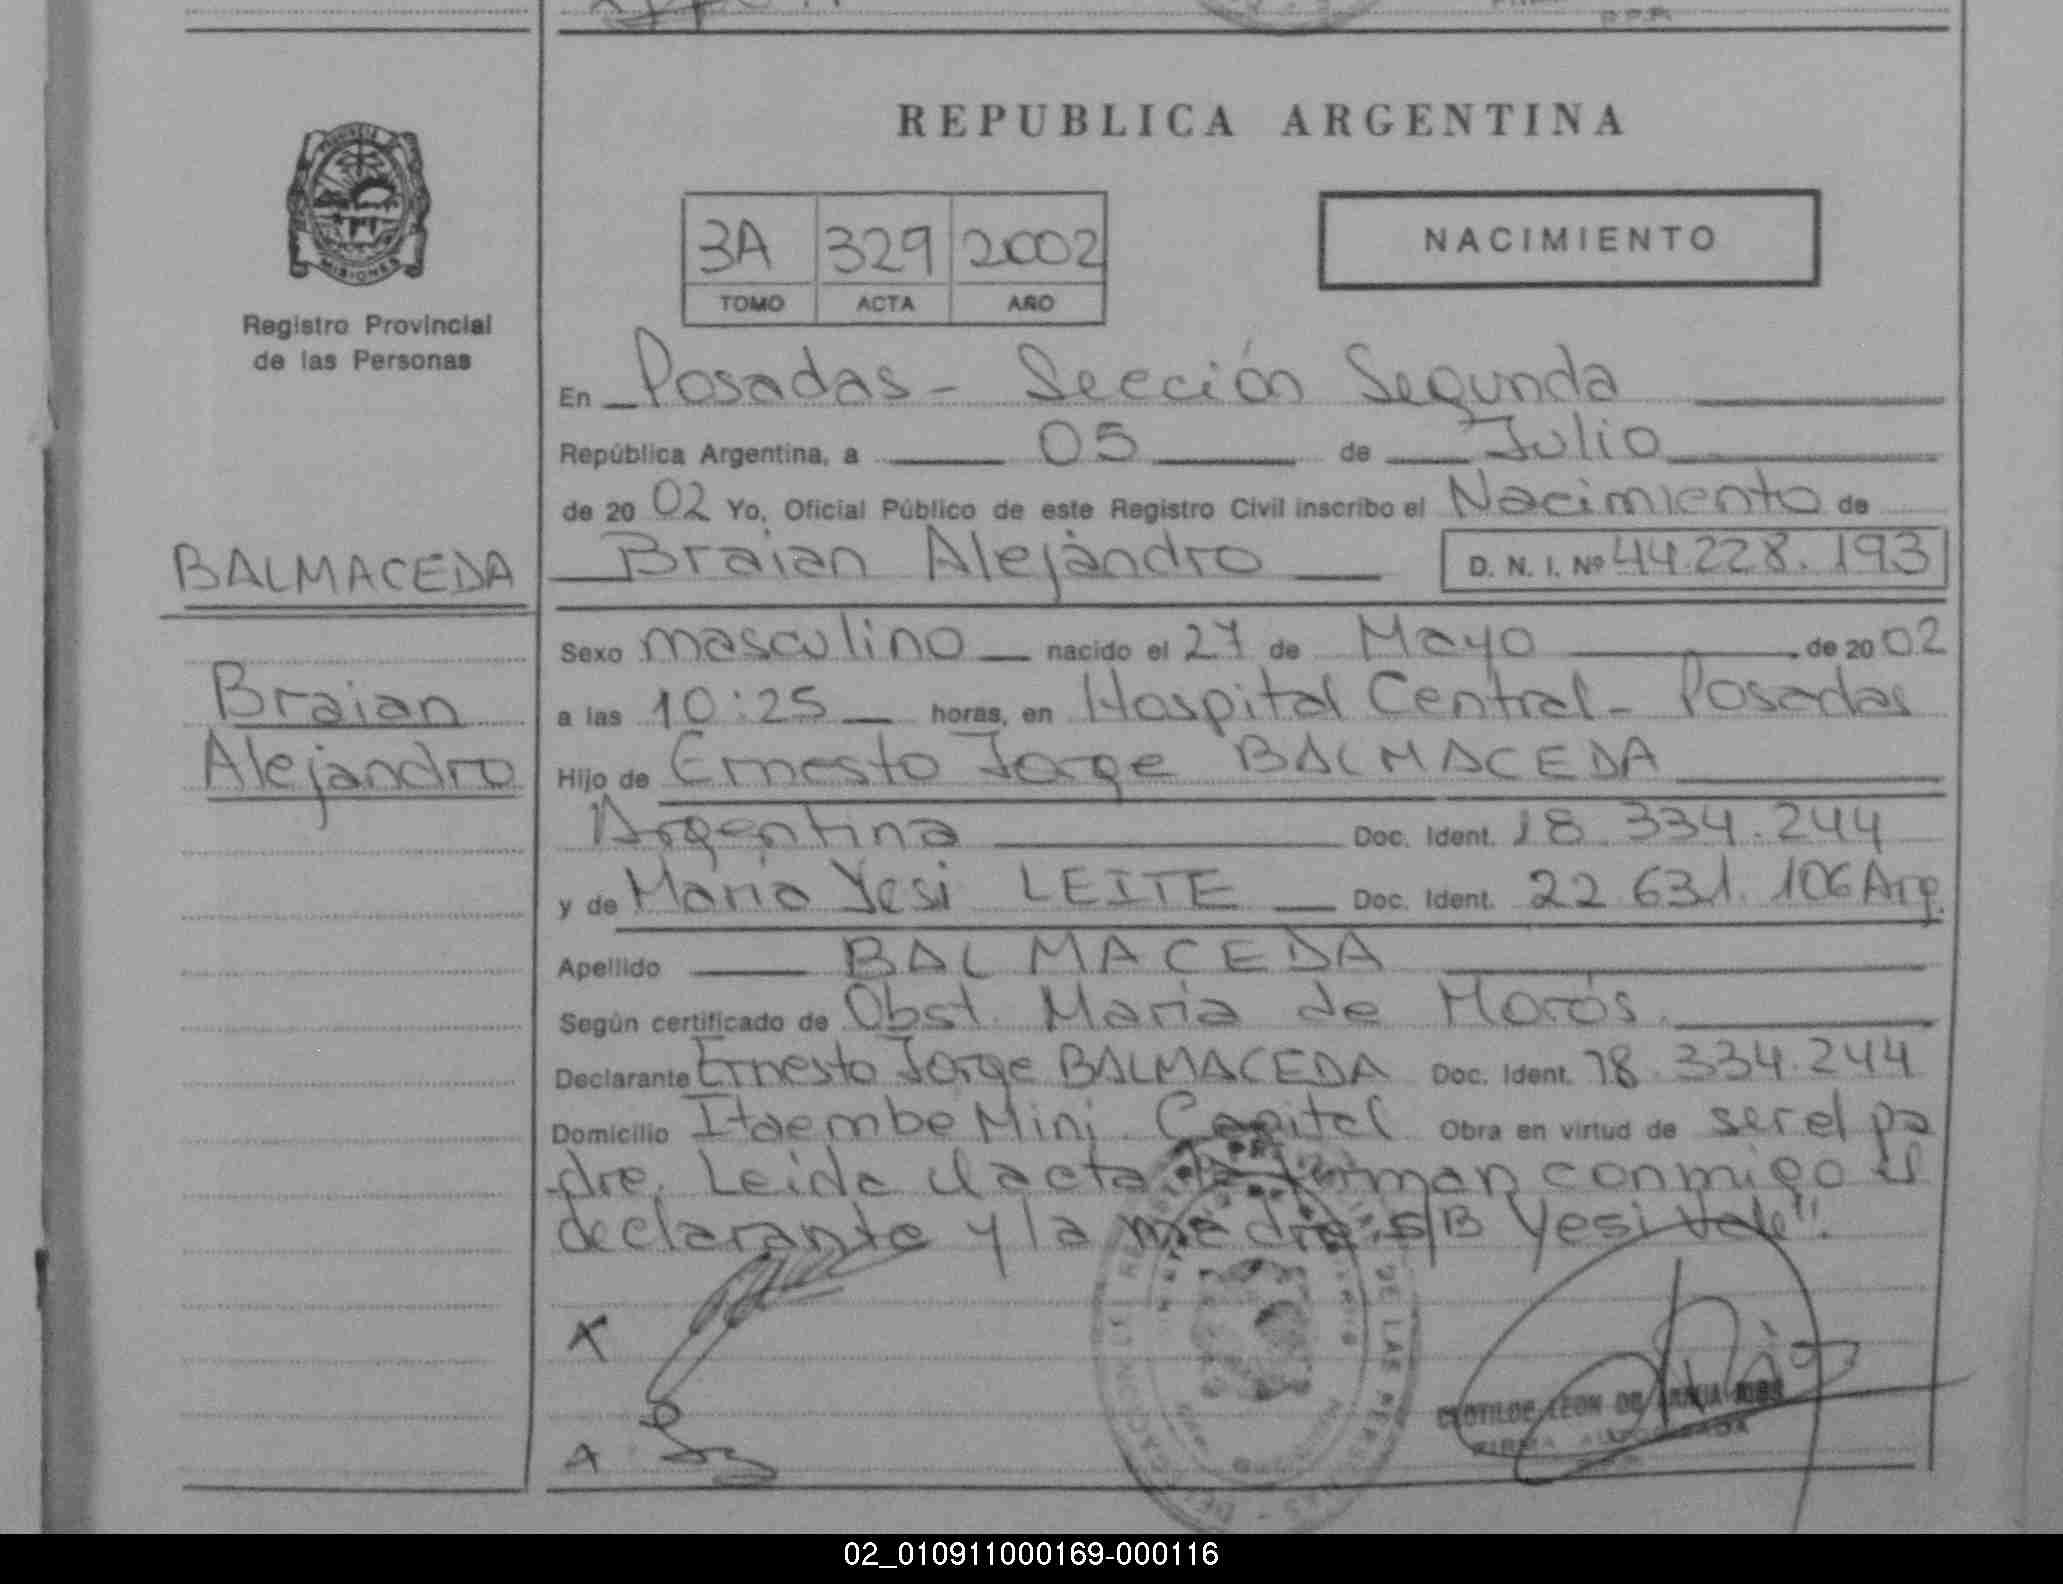 REPUBLICA ARGENTINA
PROVINCIA
MISIONES
Registro Provincial
de las Personas
3A 329 2002
TOMO ACTA AÑO
NACIMIENTO
En Posadas - Sección Segunda
República Argentina, a 05 de Julio
de 20 02 Yo, Oficial Público de este Registro Civil inscribo el Nacimiento de
BALMACEDA
Braian Alejandro D. N. I. Nº 44.228.193
Sexo masculino nacido el 27 de Mayo de 20 02
Braian
a las 10:25 horas, en Hospital Central - Posadas
Alejandro
Hijo de Ernesto Jorge BALMACEDA
Argentina Doc. Ident. 18.334.244
y de Maria Yesi LEITE Doc. Ident. 22.631.106 Arg.
Apellido BALMACEDA
Según certificado de Obst. Maria de Morós.
Declarante Ernesto Jorge BALMACEDA Doc. Ident. 18.334.244
Domicilio Itaembe Mini Capital Obra en virtud de ser el pa
dre. Leida el acta la firman conmigo el
declarante y la madre. S/B Yesi Vale".
DE LAS PERSONAS
CLOTILDE LEON DE
FIRMA AUTORIZADA
02_010911000169-000116